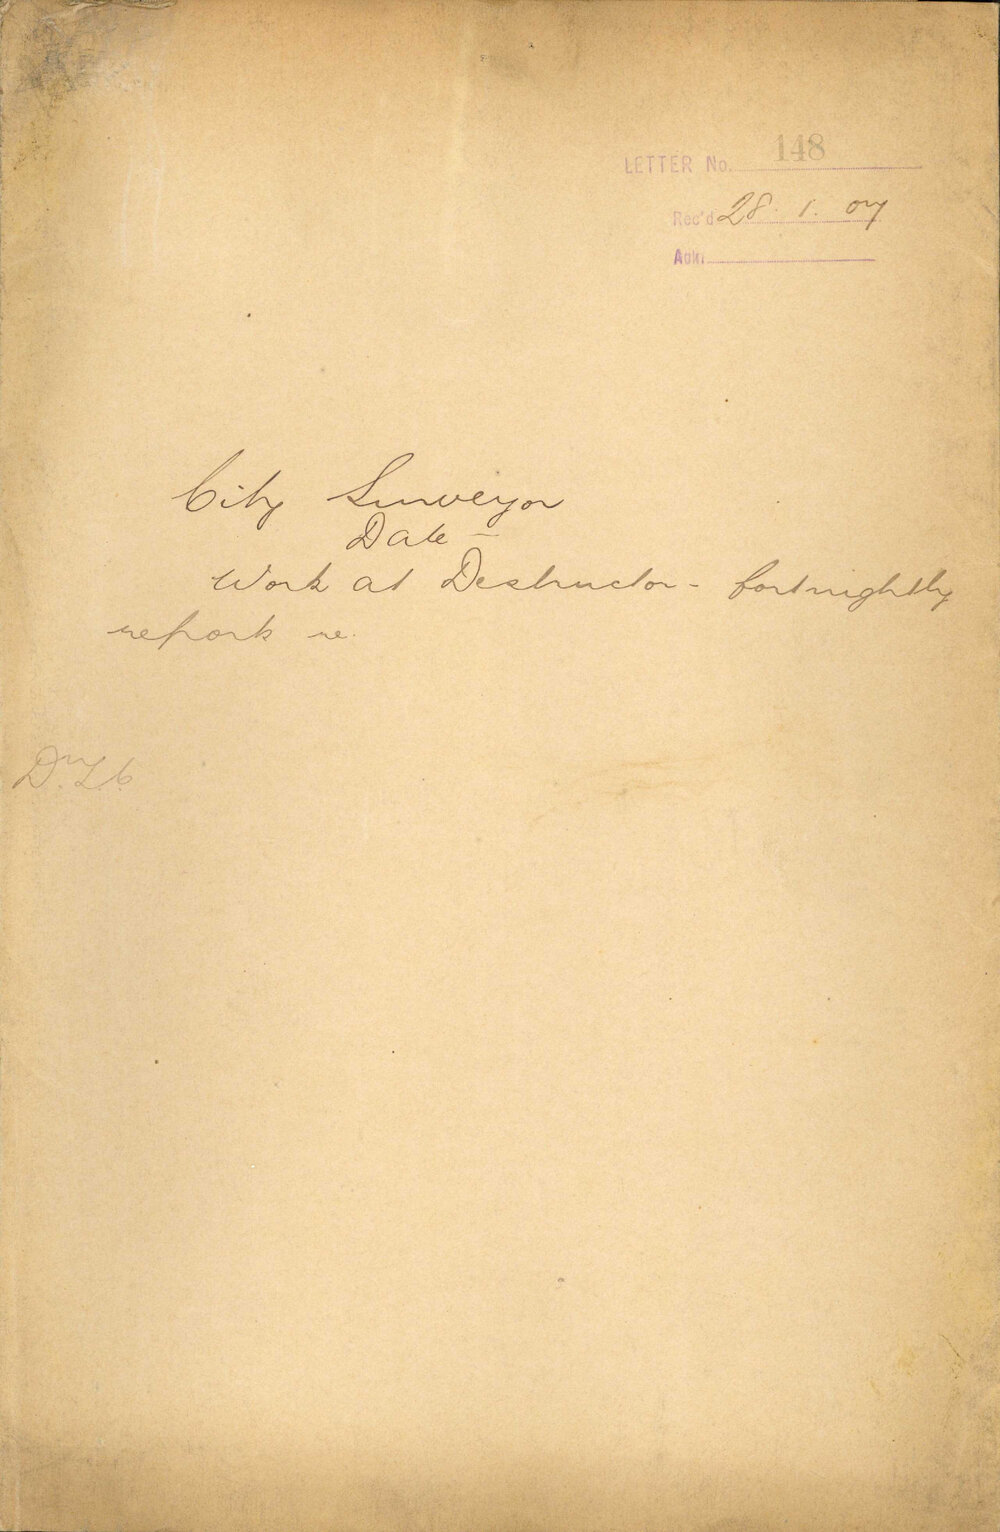 LETTER No. 148
Rec'd 28. 1. 07
Ackd.
City Surveyor
Date —
Work at Destructor - fortnightly
report re.